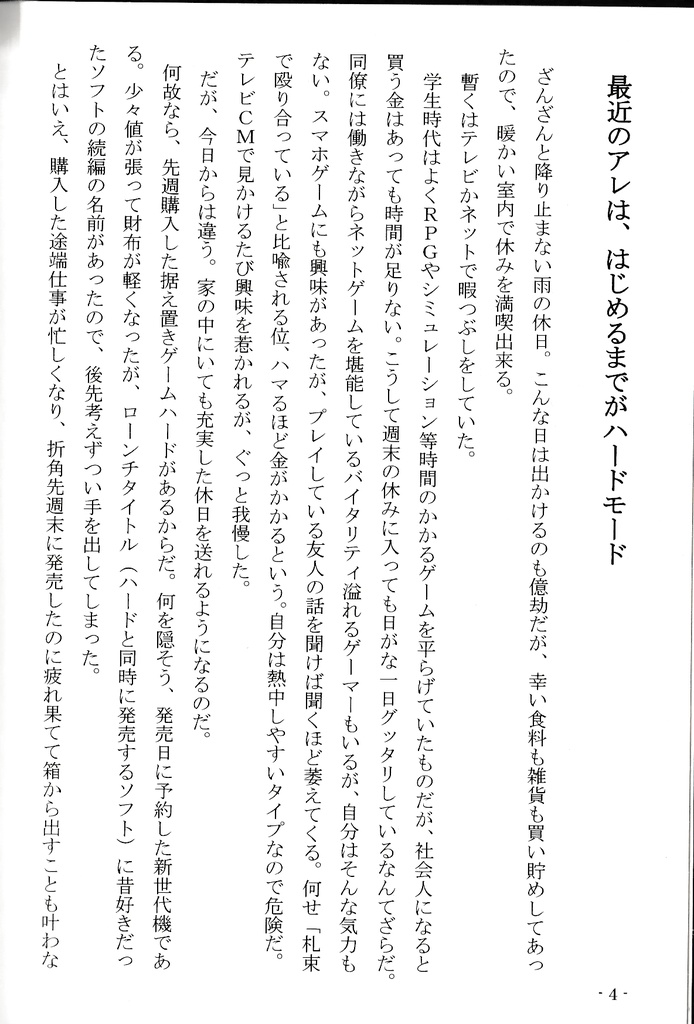 最近のアレは、はじめるまでがハードモード
ざんざんと降り止まない雨の休日。こんな日は出かけるのも億劫だが、幸い食料も雑貨も買い貯めしてあっ
たので、暖かい室内で休みを満喫出来る。
暫くはテレビかネットで暇つぶしをしていた。
学生時代はよくRPGやシミュレーション等時間のかかるゲームを平らげていたものだが、社会人になると
買う金はあっても時間が足りない。こうして週末の休みに入っても日がな一日グッタリしているなんてざらだ。
同僚には働きながらネットゲームを堪能しているバイタリティ溢れるゲーマーもいるが、自分はそんな気力も
ない。スマホゲームにも興味があったが、プレイしている友人の話を聞けば聞くほど萎えてくる。何せ「札束
で殴り合っている」と比喩される位、ハマるほど金がかかるという。自分は熱中しやすいタイプなので危険だ。
テレビCMで見かけるたび興味を惹かれるが、ぐっと我慢した。
だが、今日からは違う。家の中にいても充実した休日を送れるようになるのだ。
何故なら、先週購入した据え置きゲームハードがあるからだ。何を隠そう、発売日に予約した新世代機であ
る。少々値が張って財布が軽くなったが、ローンチタイトル（ハードと同時に発売するソフト）に昔好きだっ
たソフトの続編の名前があったので、後先考えずつい手を出してしまった。
とはいえ、購入した途端仕事が忙しくなり、折角先週末に発売したのに疲れ果てて箱から出すことも叶わな
- 4 -